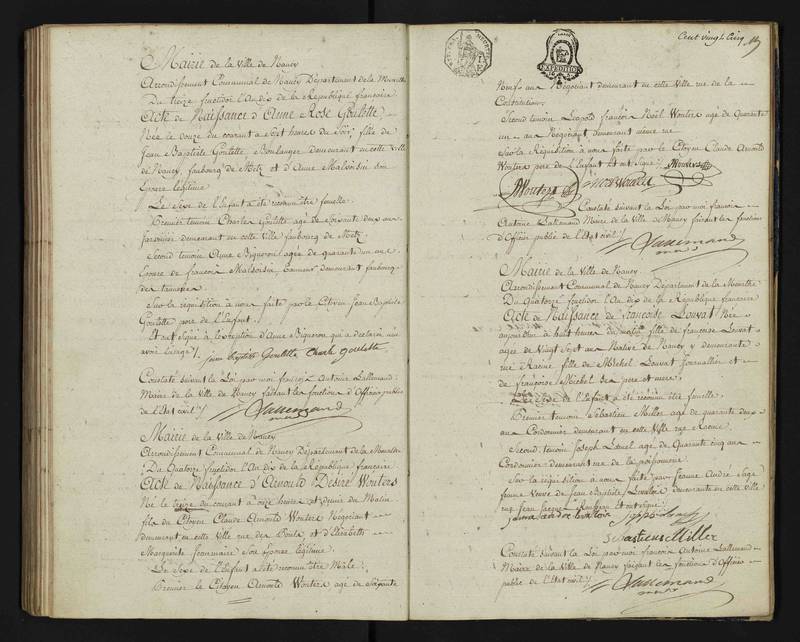 Mairie de la Ville de Nancy
Arrondissement Communal de Nancy Département de la Meurthe
Du treize fructidor l'An dix de la République française
Acte de Naissance d'Anne Rose Goulette,
Née le douze du courant à sept heures du Soir, fille de
Jean Baptiste Goulette, Boulanger demeurant en cette Ville
de Nancy, faubourg de Metz et d'Anne Malvoisin son
Epouse légitime
Le Sexe de l'Enfant a été reconnu être femelle.
Premier temoin Charles Goulette agé de soixante deux ans
jardinier demeurant en cette Ville faubourg de Metz.
Second temoin Anne Bigueron agée de quarante un ans
Epouse de francois Malvoisin, demeurant faubourg
des
Sur la réquisition à nous faite par le Citoyen Jean Baptiste
Goulette pere de l'Enfant.
Et ont signé à l'exception d'Anne Bigueron qui a déclaré n'en
avoir l'usage.
jean baptiste Goulette Charle goulette
Constaté suivant la Loi par moi françois Antoine Lallemand
Maire de la Ville de Nancy faisant les fonctions d'officier public
de l'Etat civil
Lallemand
Mairie de la Ville de Nancy
Arrondissement Communal de Nancy Département de la Meurthe
Du Quatorze fructidor l'An dix de la République francaise
Acte de Naissance d'Arnould Désiré Wouters
Né le treize du courant à onze heures et demie du Matin
fils du Citoyen Claude Arnould Wouters Négociant
demeurant en cette Ville rue des Ponts et d'Elizabeth
Marguerite Jeanmaire Son Epouse légitime.
Le Sexe de l'Enfant a été reconnu être Mâle.
Premier le Citoyen Arnould Wouters agé de Soixante
Cent vingt Cinq
Neuf ans Négociant demeurant en cette Ville rue de la
Constitution,
Second temoin Léopold françois Noël Wouters agé de Quarante
un ans Négociant demeurant même rue
Sur la Réquisition à nous faite par le Citoyen Claude Arnould
Wouters pere de l'Enfant Et ont signé.
Wouters
Wouters
Constaté suivant la Loi par moi francois
Antoine Lallemand Maire de la Ville de Nancy faisant les fonctions
d'Officier public de l'Etat civil
Lallemand
Mairie de la Ville de Nancy
Arrondissement Communal de Nancy Département de la Meurthe
Du Quatorze fructidor l'An dix de la République française
Acte de Naissance de Françoise Louvat Née
aujourd'hui à huit heures du matin fille de francoise Louvat
agée de Vingt Sept ans Native de Nancy y demeurante
rue Racine fille de Michel Louvat Journallier et
de françoise Michel Ses pere et mere.
Le Sexe de l'Enfant a été reconnu être femelle
Premier temoin Sebastien Miller agé de quarante deux
ans Cordonnier demeurant en cette Ville rue Racine.
Second temoin Joseph agé de Quarante cinq ans
Cordonnier demeurant rue de la poissonnerie.
Sur la réquisition à nous faite par Jeanne André Sage
femme Veuve de Jean Baptiste demeurante en cette Ville
rue Jean Jacques Rousseau Et ont signé
Sebastiens Miller
Constaté suivant la Loi par moi francois Antoine Lallemand
Maire de la Ville de Nancy faisant les fonctions d'Officier
public de l'Etat civil
Lallemand